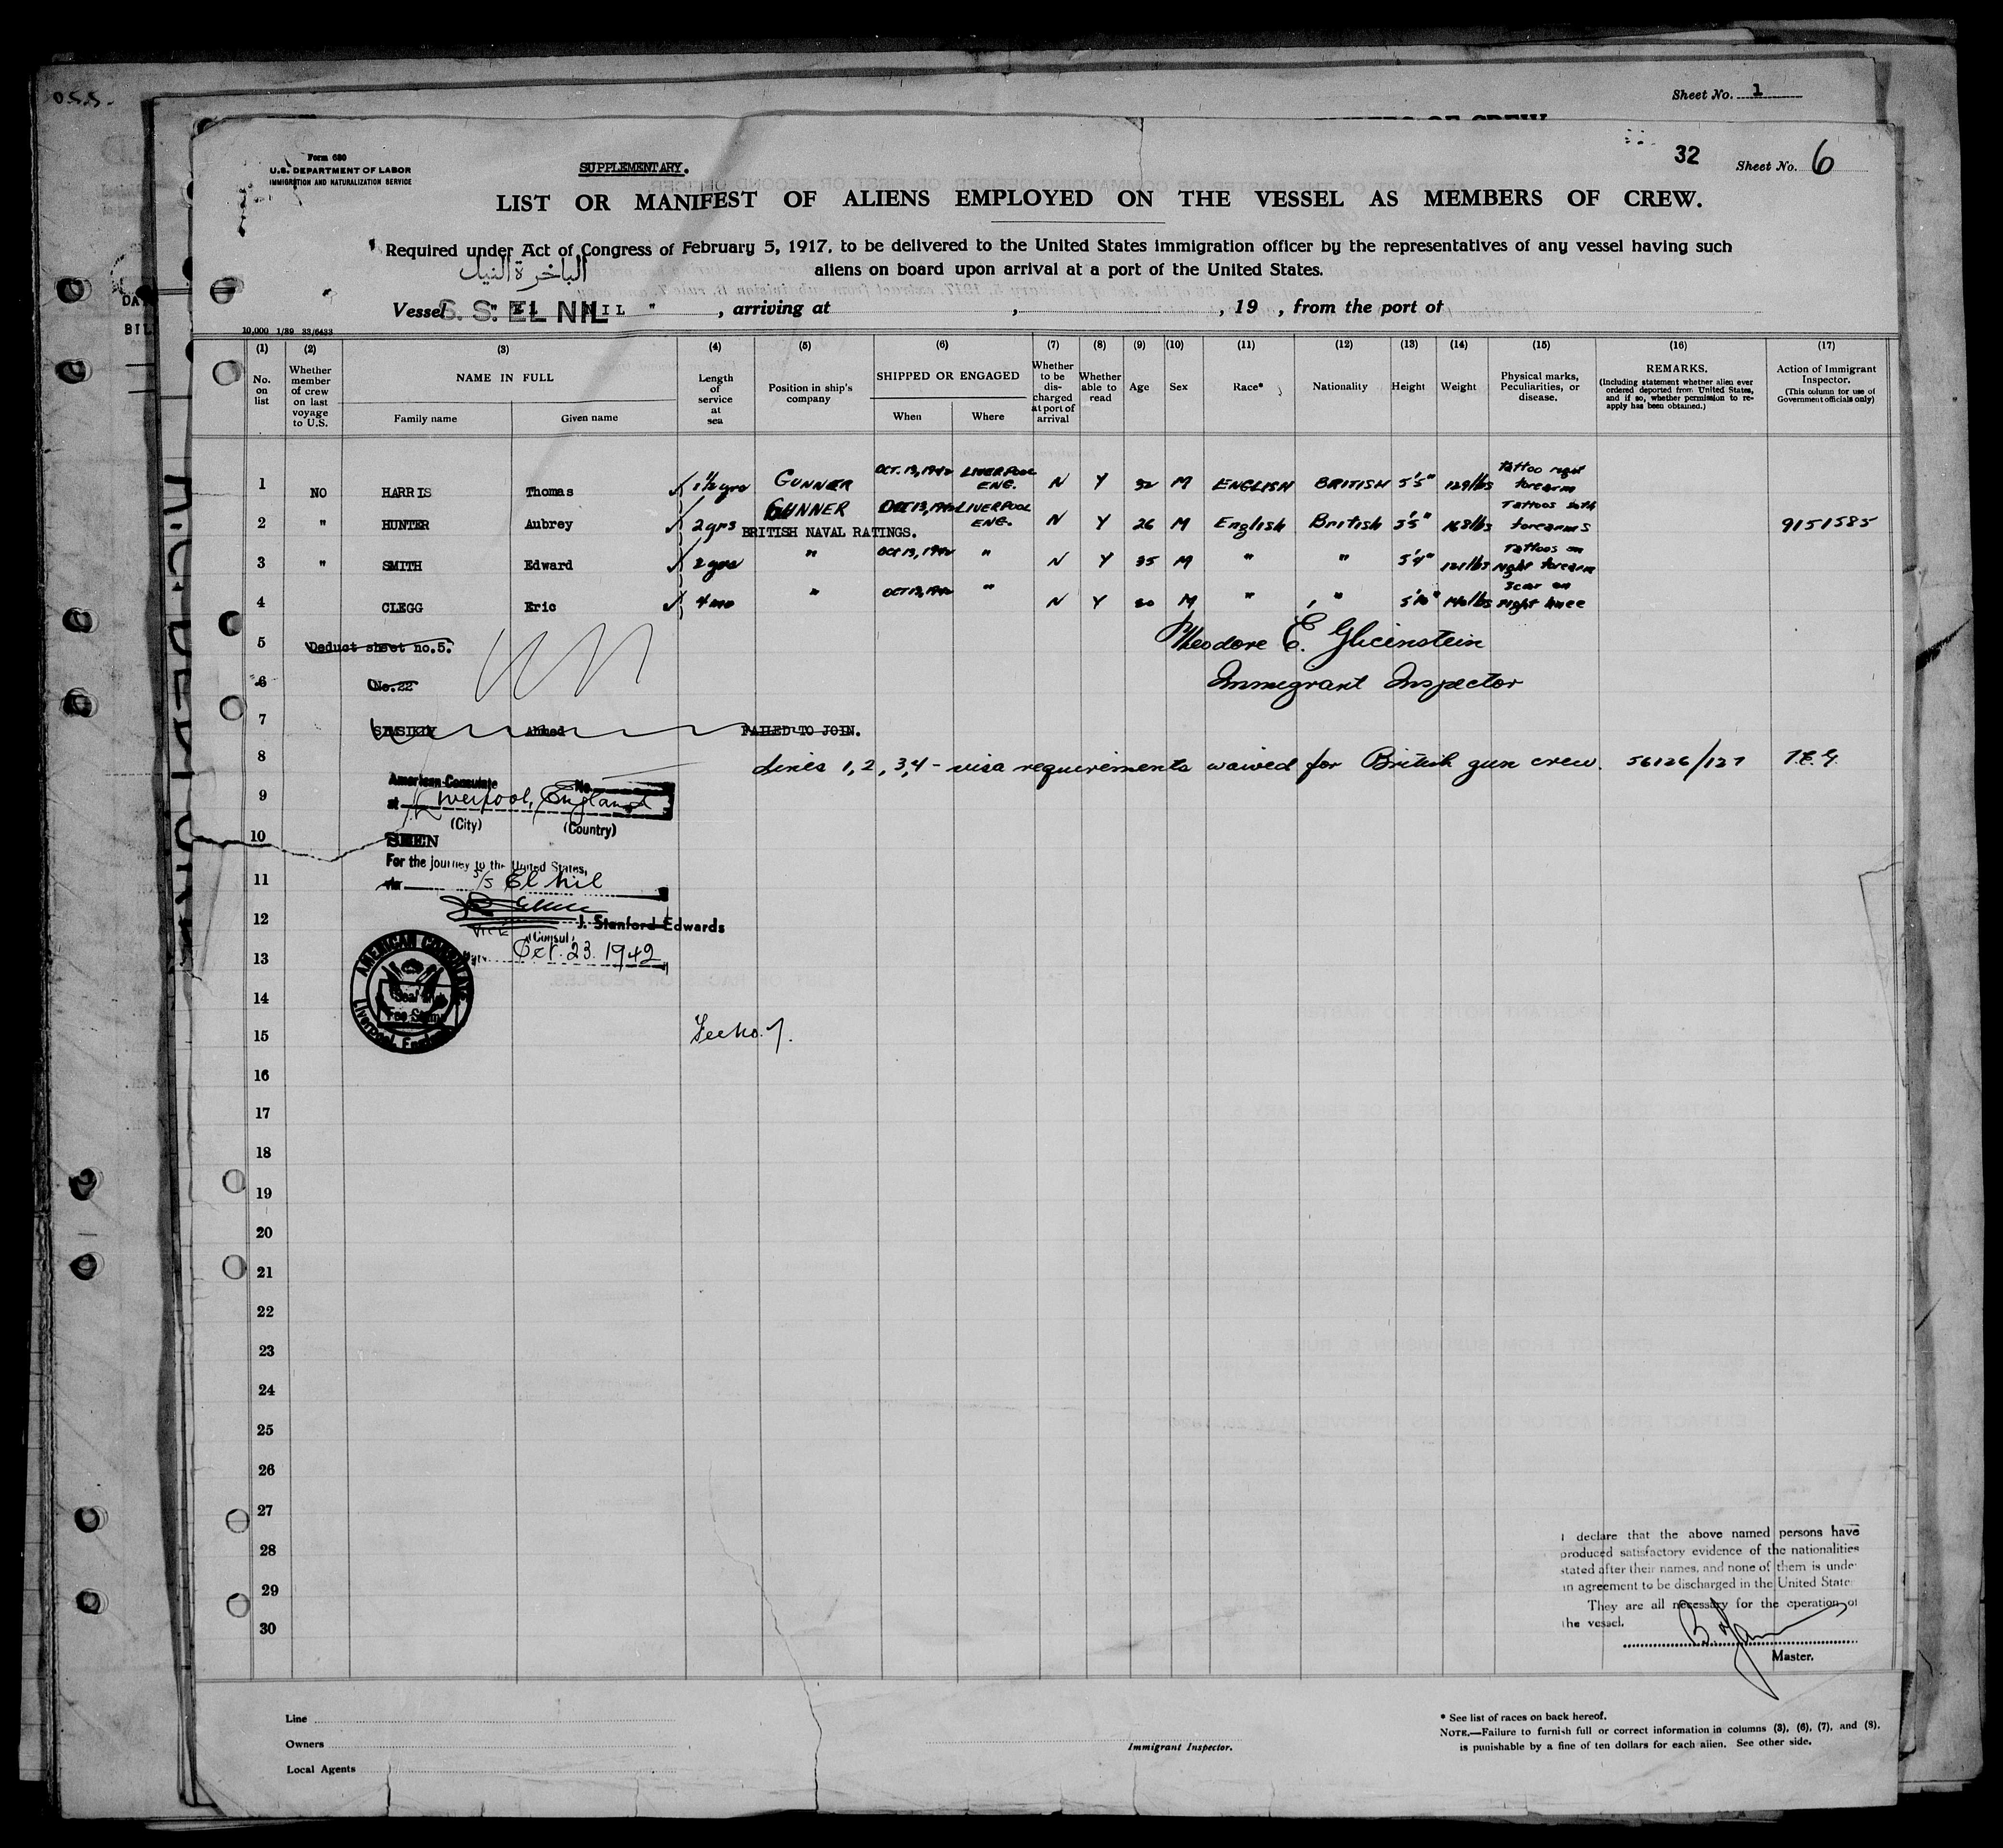 O.S.S.
Sheet No. 1
Form 680
U.S. DEPARTMENT OF LABOR
IMMIGRATION AND NATURALIZATION SERVICE
SUPPLEMENTARY.
32
Sheet No. 6
LIST OR MANIFEST OF ALIENS EMPLOYED ON THE VESSEL AS MEMBERS OF CREW.
Required under Act of Congress of February 5, 1917, to be delivered to the United States immigration officer by the representatives of any vessel having such
aliens on board upon arrival at a port of the United States.
الباخرة النيل
Vessel S. S. EL NIL " El NIL " , arriving at , , 19 , from the port of
10,000 1/39 33/6433
(1) (2) (3) (4) (5) (6) (7) (8) (9) (10) (11) (12) (13) (14) (15) (16) (17)
No. on list
Whether member of crew on last voyage to U.S.
NAME IN FULL
Family name
Given name
Length of service at sea
Position in ship's company
SHIPPED OR ENGAGED
When
Where
Whether to be discharged at port of arrival
Whether able to read
Age
Sex
Race*
Nationality
Height
Weight
Physical marks, Peculiarities, or disease.
REMARKS.
(Including statement whether alien ever ordered deported from United States, and if so, whether permission to re-apply has been obtained.)
Action of Immigrant Inspector.
(This column for use of Government officials only)
1 NO HARRIS Thomas 1½ yrs GUNNER OCT. 13, 1942 LIVERPOOL ENG. N Y 32 M ENGLISH BRITISH 5'5" 129 lbs Tattoo right forearm
2 " HUNTER Aubrey 2 yrs GUNNER OCT 13, 1942 LIVERPOOL ENG. N Y 26 M English British 5'5" 168 lbs Tattoos both forearms 9151585
BRITISH NAVAL RATINGS.
3 " SMITH Edward 2 yrs " OCT 13, 1942 " N Y 35 M " " 5'4" 121 lbs Tattoos on right forearm
4 CLEGG Eric 4 mo " OCT 13, 1942 " N Y 20 M " " 5'10" 140 lbs Scar on right knee
5 Deduct sheet no.5. Theodore E. Glicenstein
6 No.22 Immigrant Inspector
7 SIMSIKIN Ahmed FAILED TO JOIN.
8 Lines 1, 2, 3, 4 - visa requirements waived for British gun crew. 56126/127 T.E.G.
American Consulate No.
9 at Liverpool, England
(City) (Country)
10 SEEN
For the journey to the United States,
11 via S/S El Nil
12 J. Stanford Edwards
Vice Consul
13 Date Oct. 23. 1942
AMERICAN CONSULATE
Liverpool, England
14
15 Fee No. 7.
16
17
18
19
20
21
22
23
24
25
26
27
28
29
30
I declare that the above named persons have
produced satisfactory evidence of the nationalities
stated after their names, and none of them is unde
an agreement to be discharged in the United State
They are all necessary for the operation of
the vessel.
Master.
Line
Owners
Local Agents
Immigrant Inspector.
* See list of races on back hereof.
NOTE.—Failure to furnish full or correct information in columns (3), (6), (7), and (8),
is punishable by a fine of ten dollars for each alien. See other side.